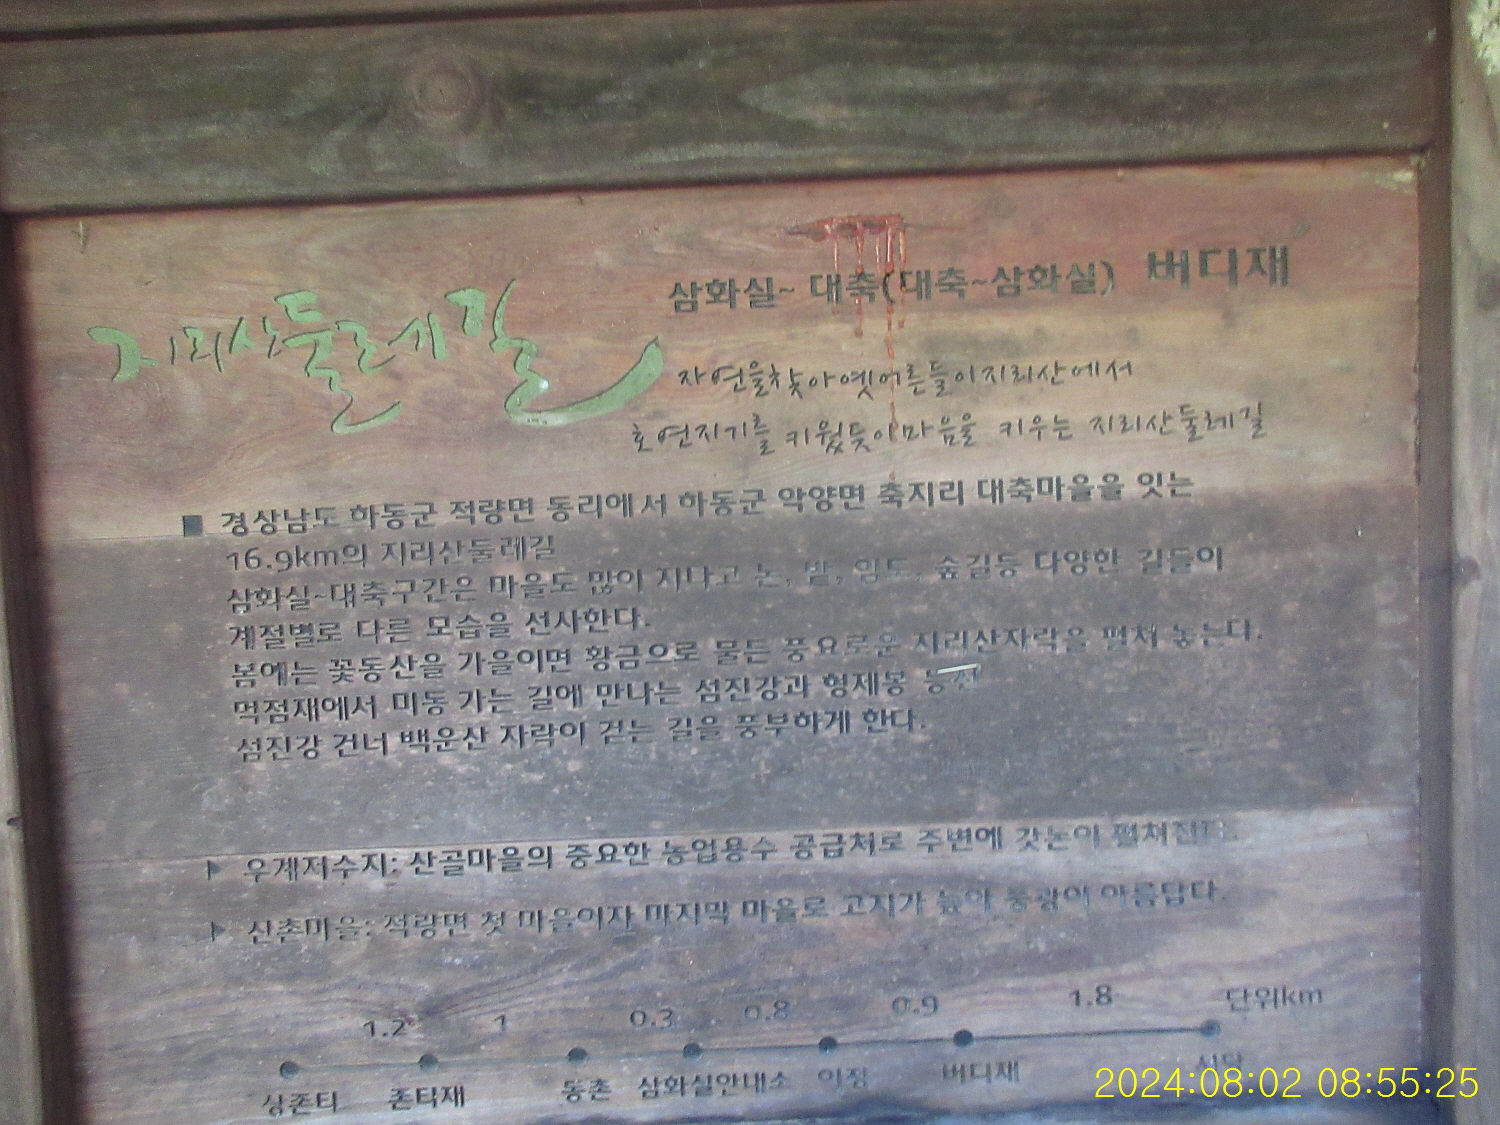 지리산둘레길
삼화실~ 대축(대축~삼화실) 버디재
자연을찾아옛어른들이지리산에서
호연지기를 키웠듯이마음을 키우는 지리산둘레길
■ 경상남도 하동군 적량면 동리에서 하동군 악양면 축지리 대축마을을 잇는
16.9km의 지리산둘레길
삼화실~대축구간은 마을도 많이 지나고 논, 밭, 임도, 숲길등 다양한 길들이
계절별로 다른 모습을 선사한다.
봄에는 꽃동산을 가을이면 황금으로 물든 풍요로운 지리산자락을 펼쳐 놓는다.
먹점재에서 미동 가는 길에 만나는 섬진강과 형제봉 능선
섬진강 건너 백운산 자락이 걷는 길을 풍부하게 한다.
▶ 우계저수지: 산골마을의 중요한 농업용수 공급처로 주변에 갓논이 펼쳐진다.
▶ 신촌마을: 적량면 첫 마을이자 마지막 마을로 고지가 높아 풍광이 아름답다.
1.2 1 0.3 0.8 0.9 1.8 단위km
상존티 존티재 동촌 삼화실안내소 이정 버디재 서당
2024:08:02 08:55:25